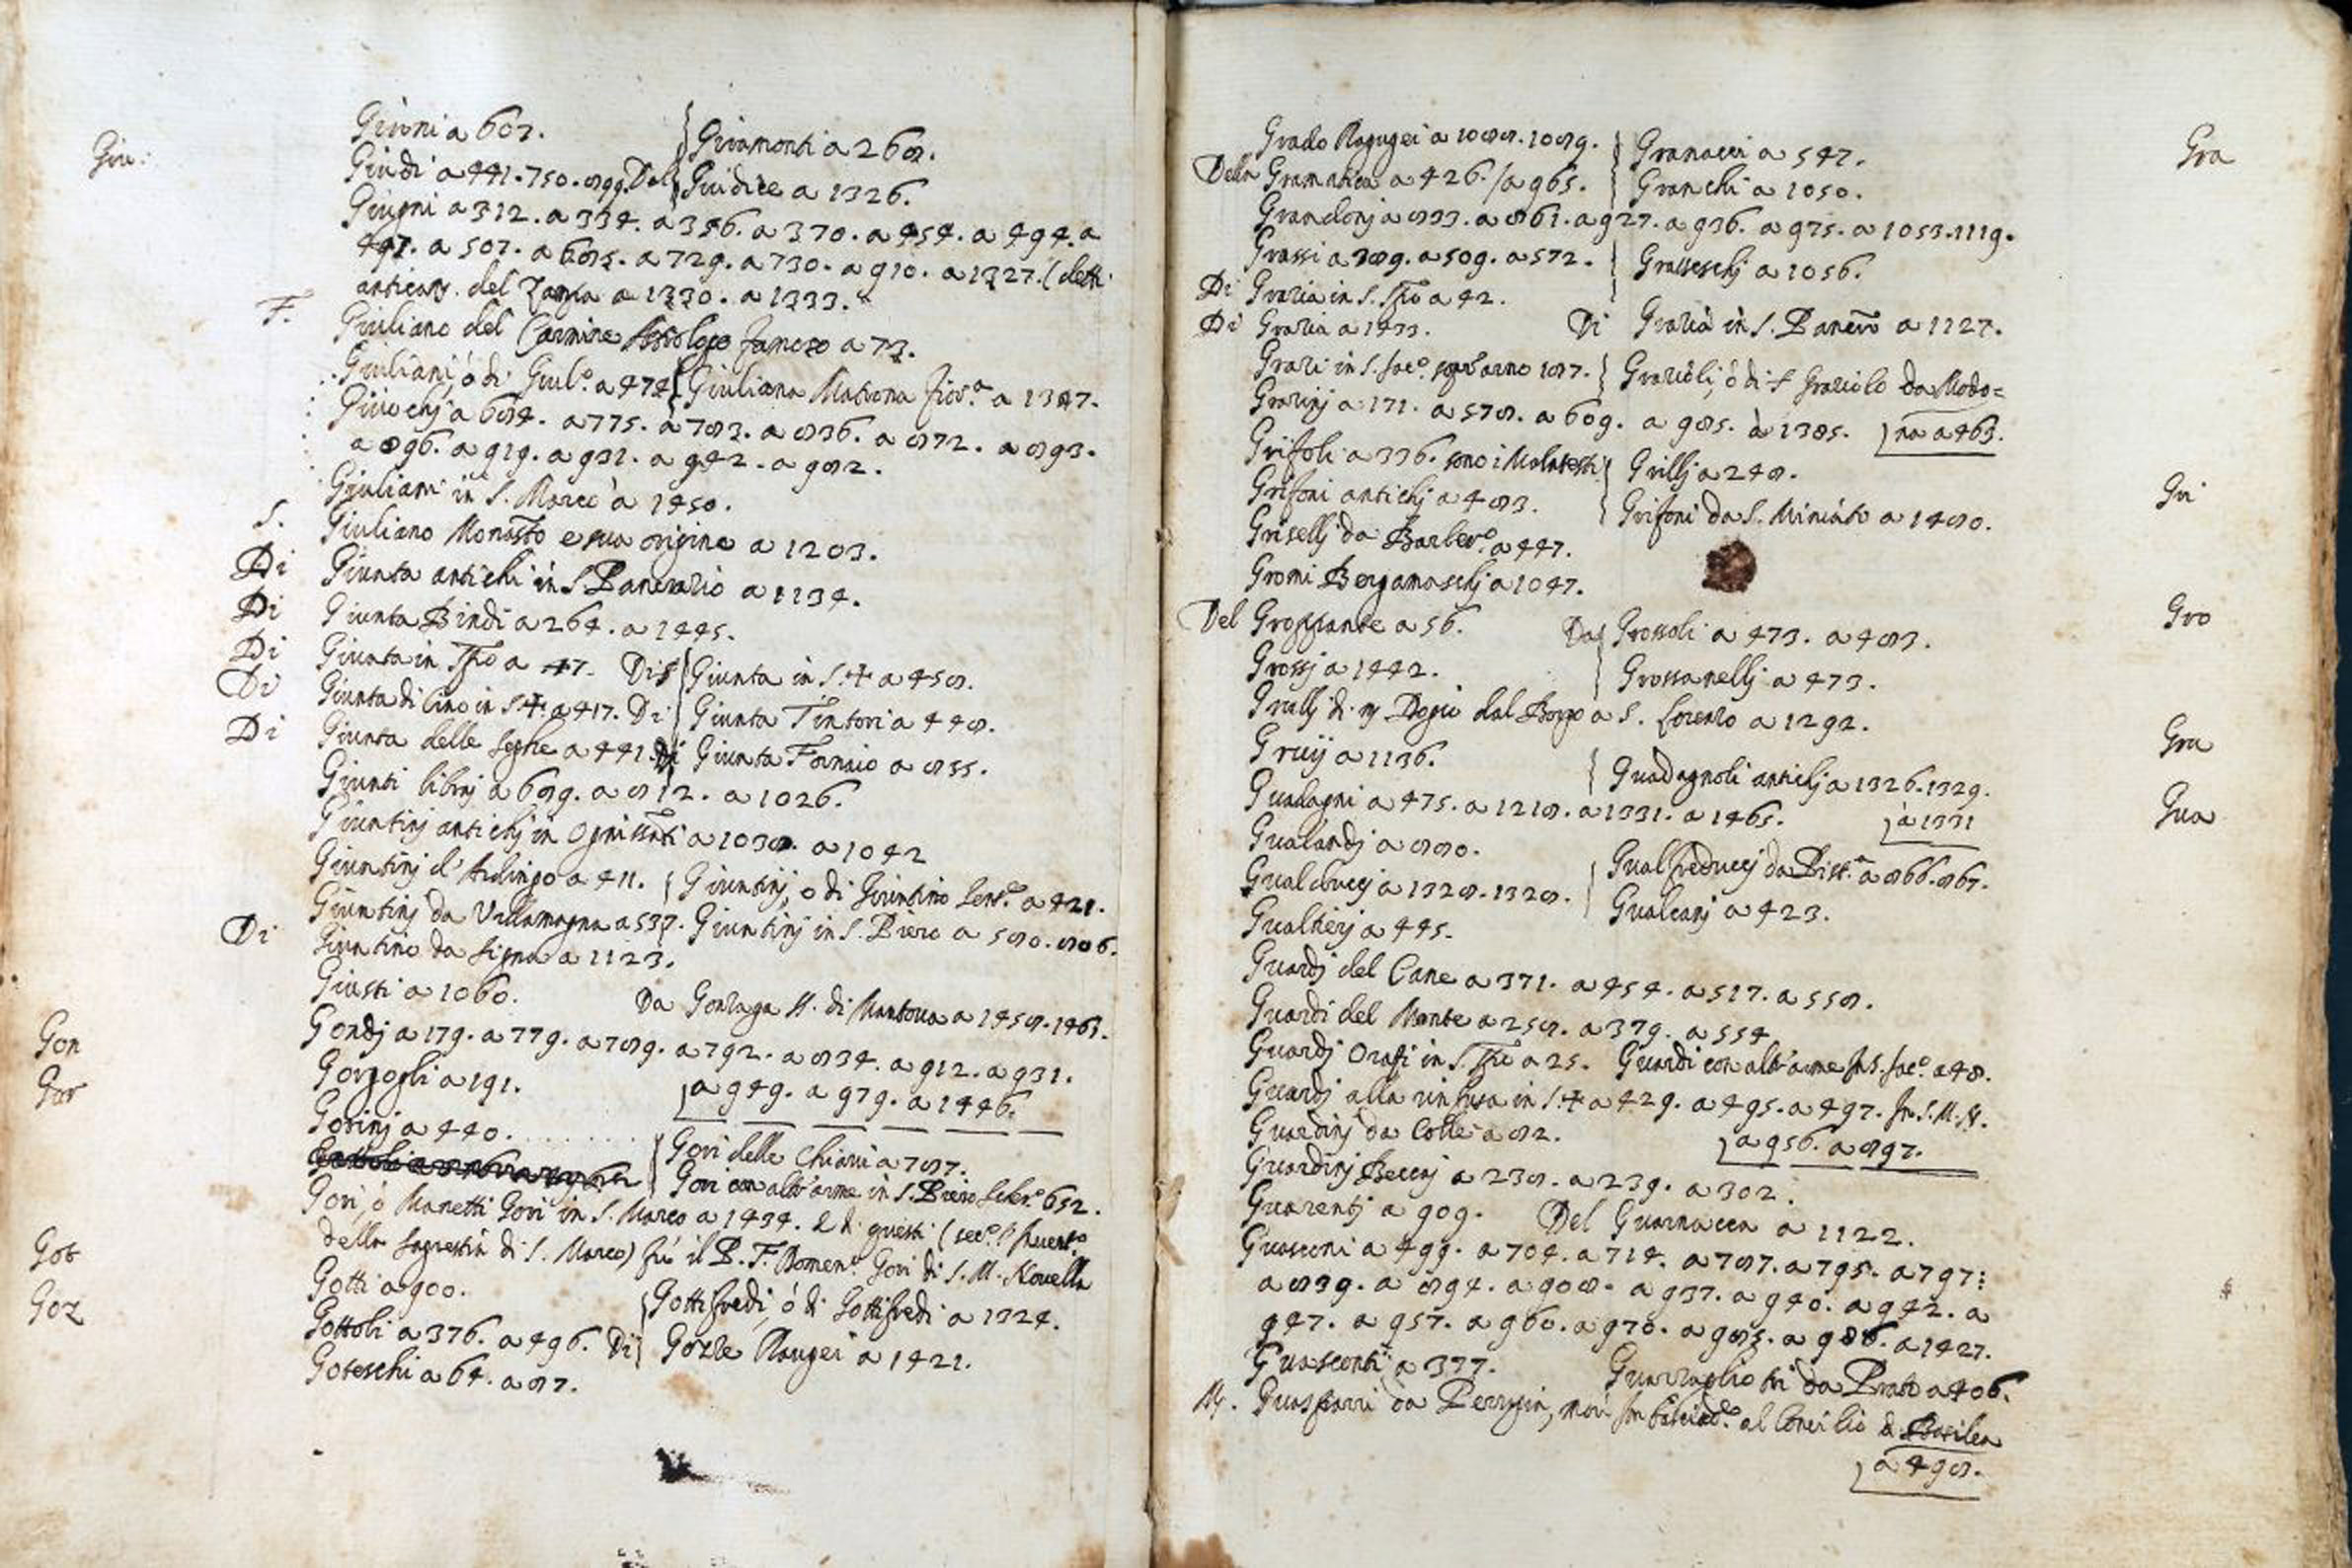 Giu:
Giuni a 607. Giramonti a 268.
Giudi a 441. 750. 899. Del Giudice a 1326.
Giugni a 312. a 334. a 356. a 370. a 454. a 494. a
497. a 507. a 685. a 729. a 730. a 910. a 1327. (detti
anticam. del Zanfa a 1330. a 1333.
F. Giuliano del Carmine Astrologo famoso a 73.
Giuliani, ò di Giul.º a 474 Giuliana Matrona Fior.ª a 1387.
Giuochj a 684. a 775. a 783. a 836. a 872. a 893.
a 896. a 919. a 931. a 942. a 982.
Giuliani in S. Marco a 1450.
S. Giuliano Monasto e sua origine a 1203.
Di Giunta antichi in S. Pancrazio a 1134.
Di Giunta Bindi a 264. a 1445.
Di Giunta in Spo a 47. Di Giunta in S. + a 458.
Di Giunta di Cino in S. + a 417. Di Giunta Tintori a 448.
Di Giunta delle Seghe a 441. Di Giunta Fornaio a 855.
Giunti libraj a 689. a 812. a 1026.
Giuntinj antichj in Ognissnti a 1038. a 1042
Giuntinj d' Ardingo a 411. Giuntinj, o di Giuntino a 421.
Giuntinj da Villamagna a 537. Giuntinj in S. Piero a 580. 806.
Di Giuntino da Signa a 1123.
Giusti a 1060. Da Gonzaga M. di Mantova a 1458. 1463.
Gon
Gondj a 179. a 779. a 789. a 792. a 834. a 912. a 931.
Gor
Gorgogli a 191. a 949. a 979. a 1446.
Gorinj a 440. Gori delle Chiavi a 787.
Gori con altr' arme in S. Piero Scher.º 652.
Gori, ò Manetti Gori in S. Marco a 1434. E di questi (sec.º l'
della Sagrestia di S. Marco) fù il P. F. Domen.º Gori di S. M. Novella
Got
Gotti a 900. Gottifredi, ò di Gottifredi a 1324.
Goz
Gottoli a 376. a 496. Di Gozze Raugei a 1421.
Goteschi a 64. a 87.
Grado Ragugei a 1088. 1089. Granacci a 547.
Gra
Della Gramatica a 426. / a 965. Granchi a 1050.
Grandonj a 833. a 861. a 927. a 936. a 975. a 1053. 1119.
Grassi a 389. a 509. a 572. Grasseschj a 1056.
Di Grazia in S. Spo a 42.
Di Grazia a 1433. Di Grazia in S. Pancro a 1127.
Grazi in S. Iac.º sopr'arno 187. Grazioli, ò di + Graziolo da Modo=
Grazinj a 171. a 578. a 609. a 985. à 1385. na a 463.
Grifoli a 336. sono i Malatesti Grillj a 248.
Gri
Grifoni antichj a 483. Grifoni da S. Miniato a 1480.
Grisellj da Barber.º a 447.
Gromi Bergamaschj a 1047.
Gro
Del Groppante a 56. Da Grossoli a 473. a 483.
Grossj a 1442. Grossanellj a 473.
Grullj di m Dogio dal Borgo a S. Lorenzo a 1292.
Gru
Gruij a 1136. Guadagnoli antichj a 1326. 1329.
Gua
Guadagni a 475. a 1218. a 1331. a 1465. à 1331
Gualandj a 880. Gualfreduccj da Pist.ª a 866. 867.
Gualduccj a 1328. 1328. Gualcanj a 423.
Gualtierj a 445.
Guardj del Cane a 371. a 454. a 517. a 558.
Guardi del Monte a 258. a 379. a 554
Guardj Orafi in S. Spo a 25. Guardi con altr' arme in S. Iac.º a 48.
Guardj alla rinfusa in S. + a 429. a 495. a 497. In S. M. N.
Guardinj da Colle a 82. a 956. a 897.
Guardinj Beccaj a 238. a 239. a 302.
Guarentj a 909. Del Guarnacca a 1122.
Guasconi a 499. a 704. a 714. a 787. a 795. a 797:
a 839. a 894. a 908. a 937. a 940. a 942. a
947. a 957. a 960. a 970. a 985. a 986. a 1427.
Guasconti a 377. Guazzagliotri da Prato a 406.
M. Guasparri da Perugia, morì Imbasciad.e al Concilio di Basilea
a 498.